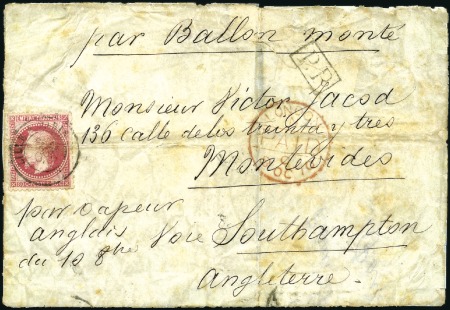 par Ballon monté
P.P.
Monsieur Victor Jacod
136 calle de los treinta y tres
Montevideo
par vapeur
anglais
du 10 8bre
Voie Southampton
Angleterre.